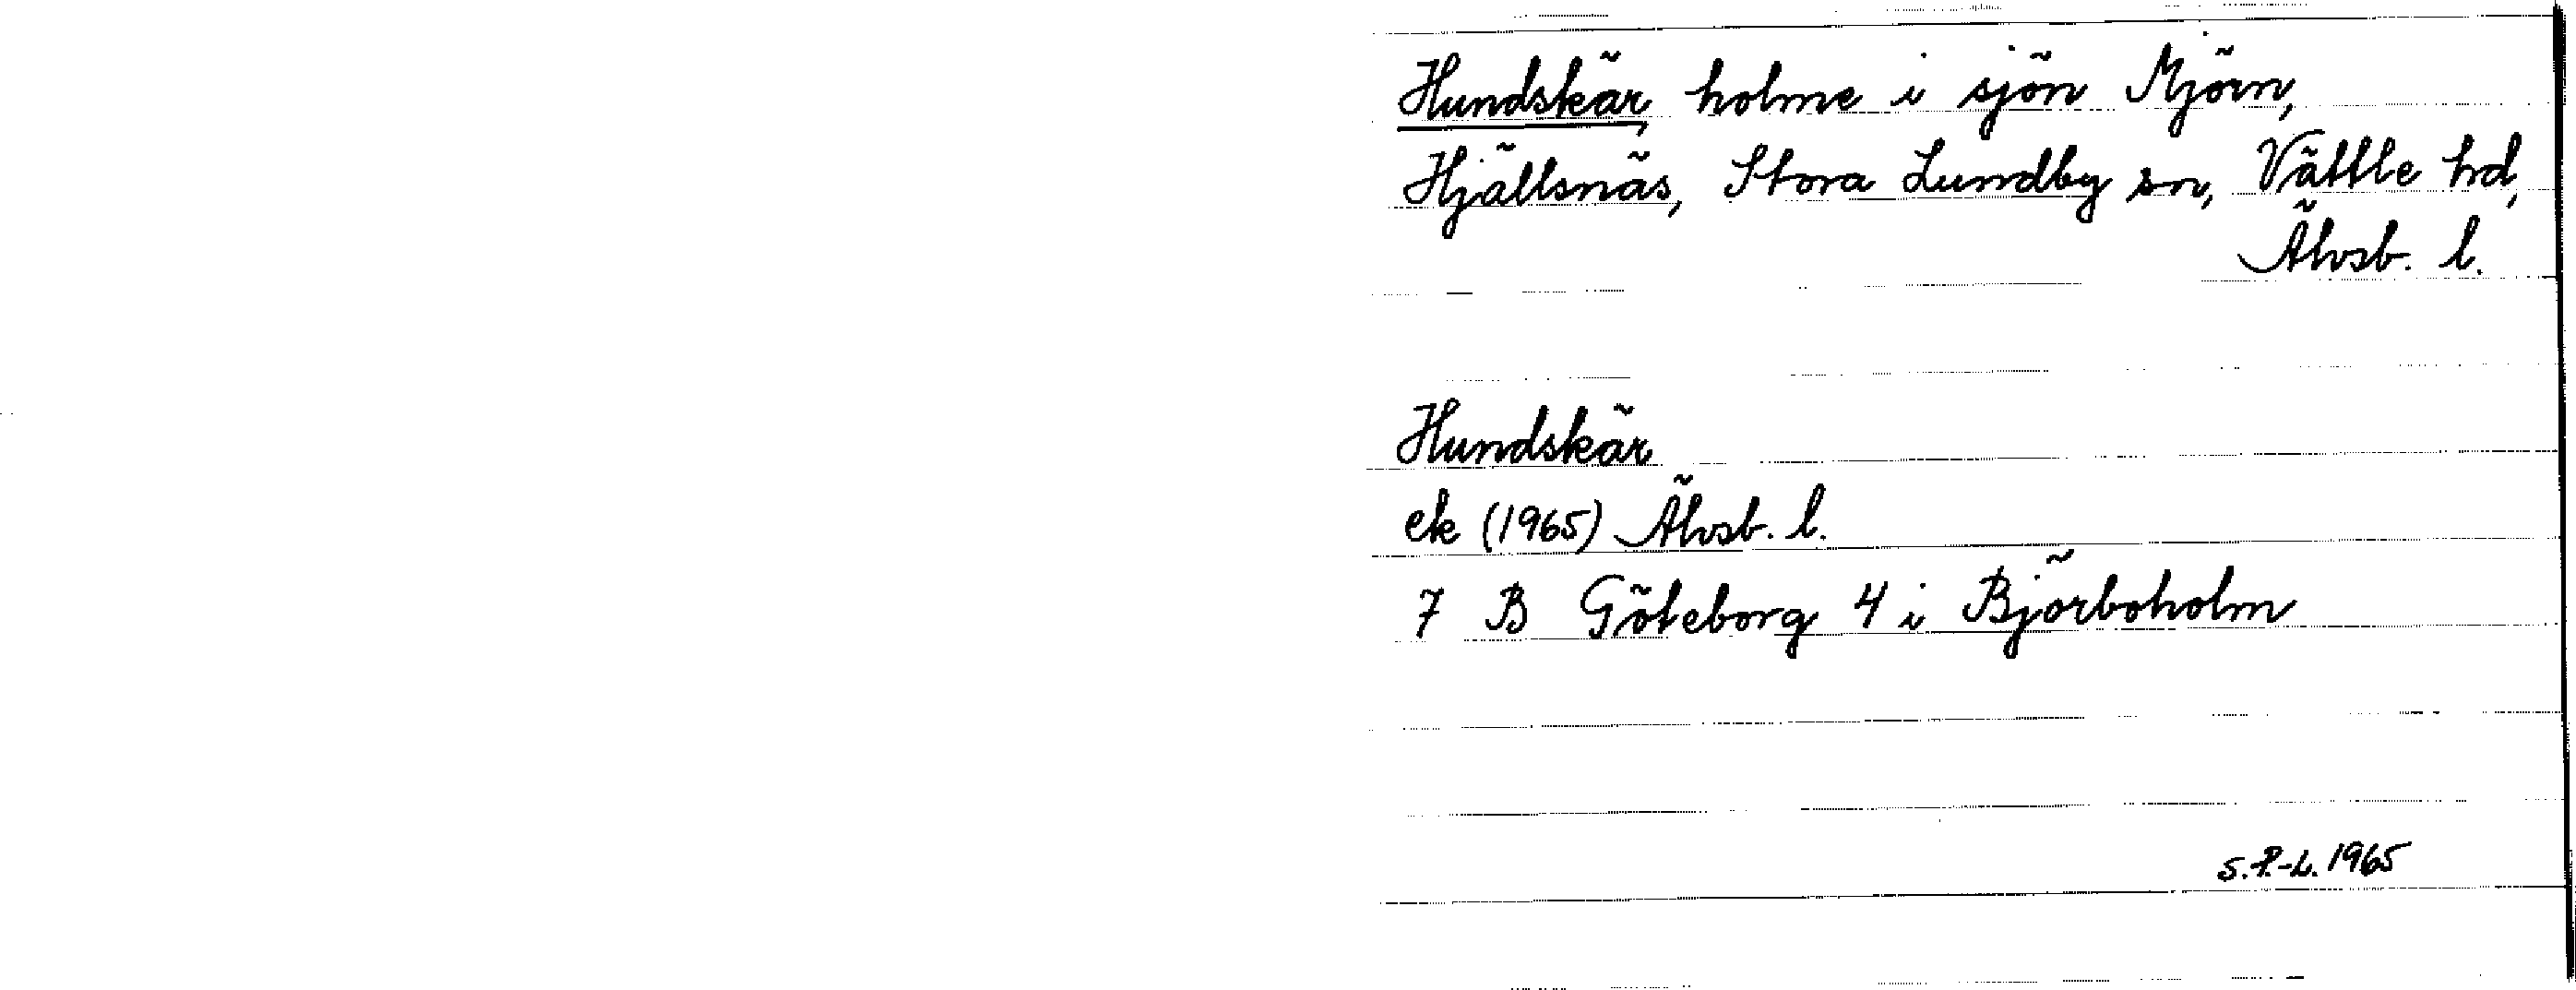 Hundskär, holme i sjön Mjörn,
Hjällsnäs, Stora Lundby sn, Vättle hd,
Älvsb. l.
Hundskär
ek (1965) Älvsb. l.
7 B Göteborg 4 i Björboholm
S.P.-L. 1965